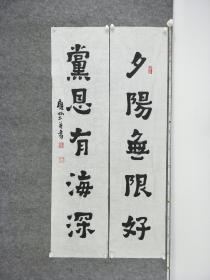 夕陽無限好
黨恩有海深